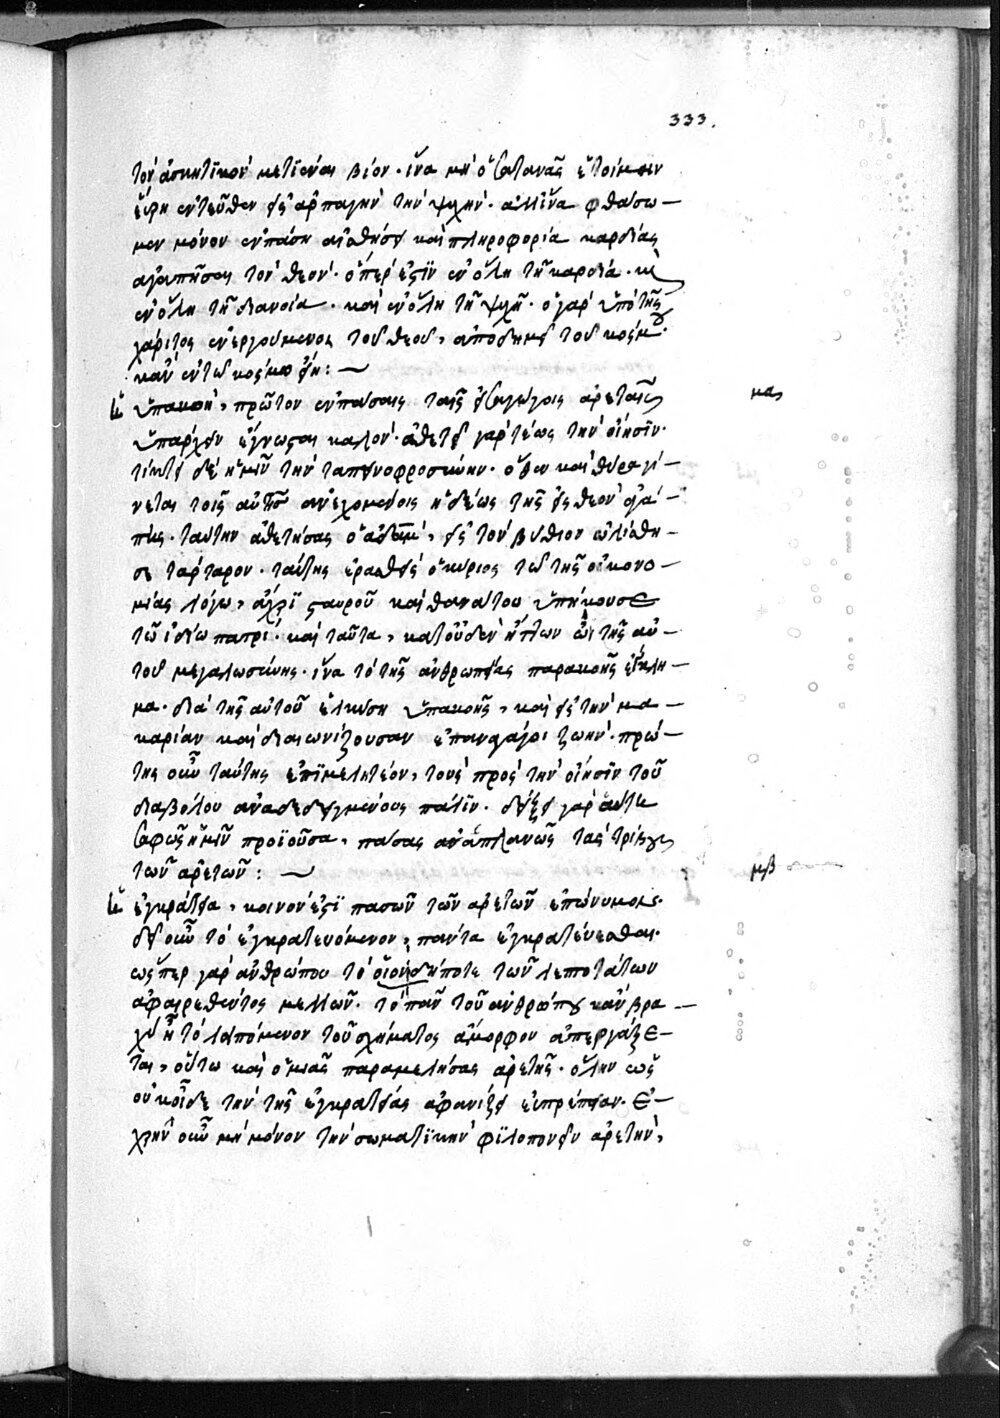 333.
τὸν ἀσκητικὸν μετϊέναι βίον. ἵνα μὴ ὁ σατανᾶς ἑτοίμην
εὕρη ἐντεῦθεν εἰς ἁρπαγὴν τὴν ψυχὴν. ἀλλ' ἵνα φθάσω-
μεν μόνον ἐν πάση αἰσθήσει καὶ πληροφορία καρδίας
ἀγαπῆσαι τὸν θεὸν. ὅπερ ἐστὶν ἐν ὅλη τῆ καρδία. κὶ
ἐν ὅλη τῆ διανοία. καὶ ἐν ὅλη τῆ ψυχῆ. ὁ γὰρ ὑπὸ τῆς
χάριτος ἐνεργούμενος τοῦ θεοῦ, ἀποδημεῖ τοῦ κόσμου.
κἂν ἐν τῶ κόσμω ἦν: ~
μα
ὑπακοὴ, πρῶτον ἐν πάσαις ταῖς εἰσαγωγοῖς ἀρεταῖς
ὑπάρχειν ἔγνωσται καλὸν. ἀθετεῖ γὰρ τέως τὴν οἴησιν.
τίκτει δὲ ἡμῖν τὴν ταπεινοφροσύνην. ὅθεν καὶ θύρα γί-
νεται τοῖς αὐτῆς ἀνεχομένοις ἡδέως τῆς εἰς θεὸν ἀγά-
πης. ταύτην ἀθετήσας ὁ ἀδὰμ, εἰς τὸν βύθιον ὠλίσθη-
σε τάρταρον. ταύτης ἐρασθεὶς ὁ κύριος τῶ τῆς οἰκονο-
μίας λόγω, ἄχρϊ σταυροῦ καὶ θανάτου ὑπήκουσε
τῶ ἰδίω πατρὶ. καὶ ταῦτα, κατ' οὐδὲν ἥττων ὢν τῆς αὐ-
τοῦ μεγαλωσύνης. ἵνα τὸ τῆς ἀνθρωπείας παρακοῆς ἔγκλη-
μα. διὰ τῆς αὐτοῦ ἑλκύση ὑπακοῆς, καὶ εἰς τὴν μα-
καρίαν καὶ διαιωνίζουσαν ἐπαναγάγοι ζωὴν. πρώ-
της οὖν ταύτης ἐπϊμελητέον, τοὺς πρὸς τὴν οἴησιν τοῦ
διαβόλου ἀναδεδεγμένους πάλϊν. δείξει γὰρ αὕτη
σαφῶς ἡμῖν προϊοῦσα, πάσας ἀναπλανῶς τὰς τρίβους
τῶν ἀρετῶν: ~
μβ
ἐγκράτεια, κοινὸν ἐστϊ πασῶν τῶν ἀρετῶν ἐπώνυμον.
δεῖ οὖν τὸ ἐγκρατευόμενον, πάντα ἐγκρατεύεσθαι.
ὥσπερ γὰρ ἀνθρώπου τὸ οἱονδήποτε τῶν λεπτοτάτων
ἀφαιρεθέντος μελλῶν. τὸ πᾶν τοῦ ἀνθρώπου κἂν βρα-
χὺ ἦ τὸ λειπόμενον τοῦ σχήματος ἄμορφον ἀπεργάζε-
ται, οὕτω καὶ ὁ μιᾶς παραμελήσας ἀρετῆς. ὅλην ὡς
οὐκ οἶδε τὴν τῆς ἐγκρατείας ἀφανίζει εὐπρέπειαν. ἐ-
χρῆν οὖν μὴ μόνον τὴν σωματϊκὴν φϊλοπονεῖν ἀρετὴν,